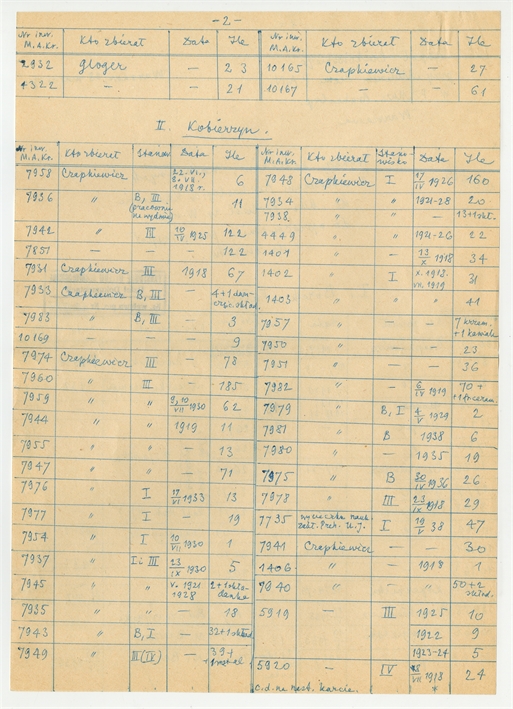 -2-
Nr inw. M.A.Kr. Kto zbierał Data Ile
2932 Gloger — 23
4322 — — 21
Nr inw. M.A.Kr. Kto zbierał Data Ile
10165 Czapkiewicz — 27
10167 — — 61
II. Kobierzyn.
Nr inw. M.A.Kr. Kto zbierał Stanow Data Ile
7958 Czapkiewicz 22.VI., 8.VII. 1918 r. 6
7936 " B, III (pracownia na wydmie) 11
7942 " III 10/IV 1925 122
7851 — — — 122
7931 Czapkiewicz III 1918 67
7933 Czapkiewicz B, III 4+1
7983 " B, III — 3
10169 — — — 9
7974 Czapkiewicz III — 78
7960 " III — 185
7959 " " 8,10/VII 1930 62
7944 " " 1919 11
7955 " " — 13
7947 " " — 71
7976 " I 17/VI 1933 13
7977 " I — 19
7954 " I 10/VII 1930 1
7937 " I i III 23/IX 1930 5
7945 " " V. 1921 1928 2+1
7935 " " — 18
7943 " B, I — 32+1
7949 " III (IV) — 39+
Nr inw. M.A.Kr. Kto zbierał Stanowisko Data Ile
7948 Czapkiewicz I 17/IV 1926 160
7934 " " 1921-28 20
7938 " " " 13+1
4449 " " 1921-26 22
1401 — " — 13/X 1918 34
1402 " I X. 1918. VII. 1919 31
1403 " " " 41
7957 " — — 7 krzem. +1
7950 " — — 23
7951 " — — 36
7982 " — 6/IV 1919 70+
7979 " B, I 4/V 1929 2
7981 " B 1938 6
7980 " — 1935 19
7975 " B 30/IV 1936 26
7978 " III 23/IX 1918 29
7735 wycieczka nauk. Zakł. Preh. U.J. I 19/V 38 47
7941 Czapkiewicz — — 30
1406 — — 1918 1
7940 " " " 50+2
5919 — III 1925 10
1922 9
1923-24 5
5920 — IV VII 1918 24
c.d. na nast. karcie.